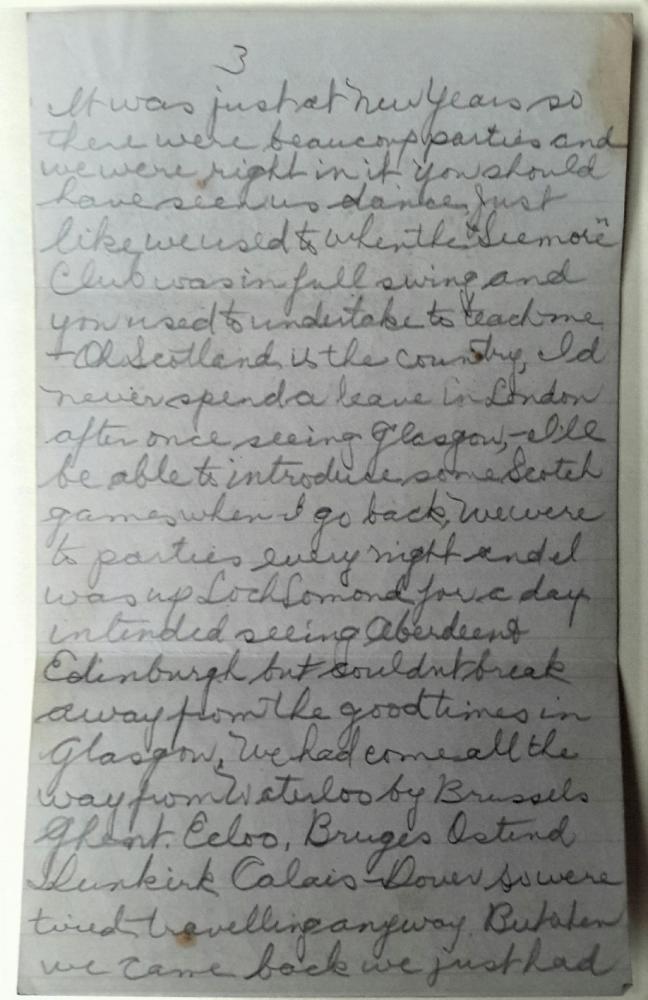 3
It was just at New Years so
there were beaucoup parties and
we were right in it you should
have seen us dance. Just
like we used to when the "Seemore"
Club was in full swing and
you used to undertake to teach me
+ Oh Scotland is the country, I'd
never spend a leave in London
after once seeing Glasgow, - I'll
be able to introduce some Scotch
games when I go back, We were
to parties every night and I
was up Loch Lomond for a day
intended seeing Aberdeen &
Edinburgh but couldnt break
away from the good times in
Glasgow, We had come all the
way from Waterloo by Brussels
Ghent. Ecloo, Bruges Ostend
Dunkirk Calais - Dover so were
tired travelling anyway. But when
we came back we just had